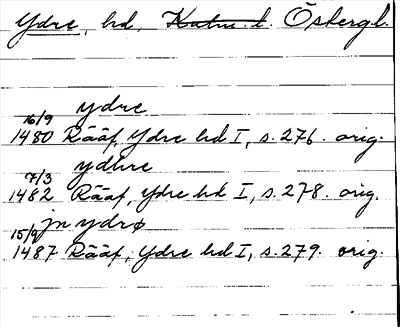 Ydre, hd, Kalm. l. Östergl.
ydre
16/9
1480 Rääf, Ydre hd I, s. 276. orig.
ydhre
7/3
1482 Rääf, Ydre hd I, s. 278. orig.
15/9 jn ydrø
1487 Rääf, Ydre hd I, s. 279. orig.